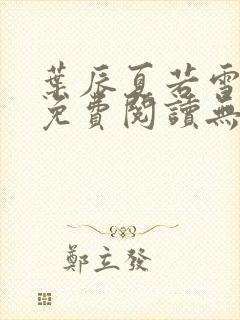 葉辰夏若雪
免費閱讀無
鄭立發